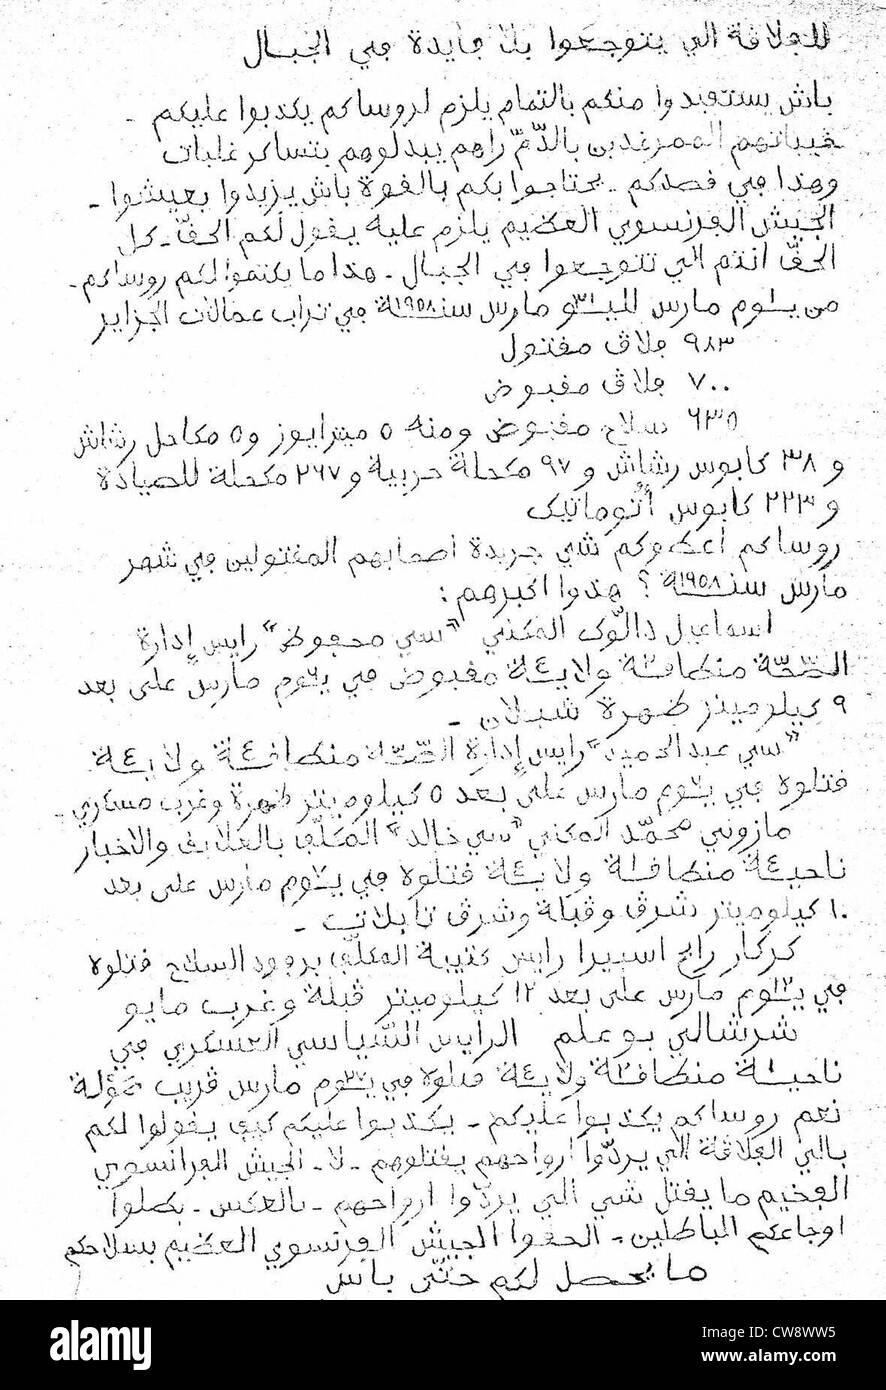 للفلاقة الي يتوجعوا بلا فايدة في الجبال
باش يستفيدوا منكم بالتمام يلزم لروساكم يكذبوا عليكم -
بالدّمّ راهم يبدلوهم
وهذا في فصدكم - يحتاجوا بكم بالفوة باش يزيدوا بعيشوا -
الجيش الفرنسوي العظيم يلزم عليه يفول لكم الحفّ - كل
الحفّ انتم الي تتوجعوا في الجبال - هذا ما يكتموا لكم روساكم -
من يـ١ـوم مارس للـ٣١ـو مارس سنـ١٩٥٨ـة في تراب عمالات الجزاير
٩٨٣ فلاف مفتول
٧٠٠ فلاف مفبوض
٦٣٥ سلاح مفبوض ومنه ٥ ميترايوز و٥ مكاحل رشاش
و ٣٨ كابوس رشاش و ٩٧ مكحلة حربية و ٢٦٧ مكحلة للصيادة
و ٢٢٣ كابوس أتوماتيك
روساكم اعطوكم شي جريدة اصحابهم المفتولين في شهر
مارس سنـ١٩٥٨ـة ؟ هذوا اكبرهم :
اسماعيل دالّوك المكني "سي محفوظ" رايس إدارة
الصّحّة منطافـ٣ـة ولايـ٤ـة مفبوض في يـ٦ـوم مارس على بعد
٩ كيلوميتر ظهرة شبلان -
"سي عبد الحميد" رايس إدارة الصّحّة منطافـ٤ـة ولايـ٤ـة
فتلوه في يـ٦ـوم مارس على بعد ٥ كيلوميتر ظهرة وغرب مسكري -
مازوني محمّد المكني "سي خالد" المكلّف بالعلايف والاخبار
ناحيـ٤ـة منطافـ١ـة ولايـ٤ـة فتلوه في يـ٧ـوم مارس على بعد
١٠ كيلوميتر شرف وفبلة وشرف تابلات -
كركار رابح اسبيرا رايس كتيبة المكلّف بروود السلاح فتلوه
في يـ١٢ـوم مارس على بعد ١٢ كيلوميتر فبلة وغرب مايو
شرشالي بو علم الرايس السّياسي العسكري في
ناحيـ١ـة منطافـ٣ـة ولايـ٤ـة فتلوه في يـ٢٧ـوم مارس فريب
نعم روساكم يكذبوا عليكم - يكذبوا عليكم كيف يفولوا لكم
بالي الفلافة الي يردّوا ارواحهم يفتلوهم - لا - الجيش الفرانسوي
الفخيم ما يفتل شي الي يردّوا ارواحهم - بالعكس - بطلوا
اوجاعكم الباطلين - الحفوا الجيش الفرنسوي العظيم بسلاحكم
ما يحصل لكم حتّى باس
alamy
alamy
alamy
Image ID: CW8WW5
www.alamy.com